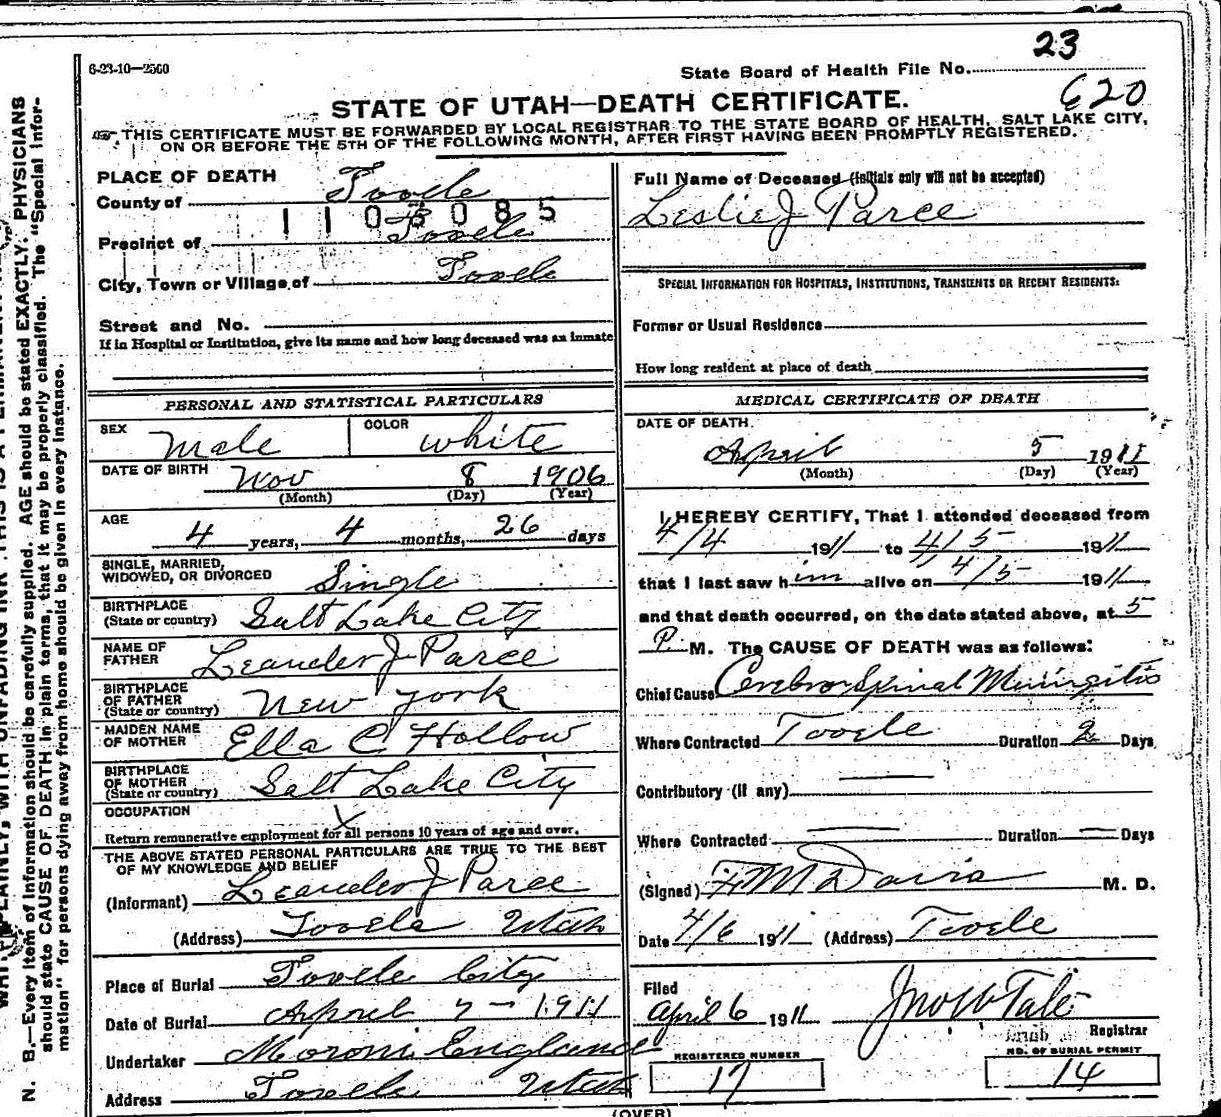 23
6-23-10—2500
State Board of Health File No.
620
STATE OF UTAH—DEATH CERTIFICATE.
THIS CERTIFICATE MUST BE FORWARDED BY LOCAL REGISTRAR TO THE STATE BOARD OF HEALTH, SALT LAKE CITY,
ON OR BEFORE THE 5TH OF THE FOLLOWING MONTH, AFTER FIRST HAVING BEEN PROMPTLY REGISTERED.
PLACE OF DEATH
County of Tooele
Precinct of Tooele
City, Town or Village of Tooele
Street and No.
If in Hospital or Institution, give its name and how long deceased was an inmate
Full Name of Deceased (Initials only will not be accepted)
Leslie J Parce
SPECIAL INFORMATION FOR HOSPITALS, INSTITUTIONS, TRANSIENTS OR RECENT RESIDENTS:
Former or Usual Residence
How long resident at place of death
PERSONAL AND STATISTICAL PARTICULARS
SEX Male COLOR White
DATE OF BIRTH Nov 8 1906
(Month) (Day) (Year)
AGE
4 years, 4 months, 26 days
SINGLE, MARRIED,
WIDOWED, OR DIVORCED Single
BIRTHPLACE
(State or country) Salt Lake City
NAME OF
FATHER Leander J Parce
BIRTHPLACE
OF FATHER
(State or country) New York
MAIDEN NAME
OF MOTHER Ella C Hollow
BIRTHPLACE
OF MOTHER
(State or country) Salt Lake City
OCCUPATION
Return remunerative employment for all persons 10 years of age and over.
THE ABOVE STATED PERSONAL PARTICULARS ARE TRUE TO THE BEST
OF MY KNOWLEDGE AND BELIEF
(Informant) Leander J Parce
(Address) Tooele Utah
Place of Burial Tooele City
Date of Burial April 7 - 1911
Undertaker Moroni England
Address Tooele Utah
MEDICAL CERTIFICATE OF DEATH
DATE OF DEATH.
April 5 1911
(Month) (Day) (Year)
I HEREBY CERTIFY, That I attended deceased from
4/4 1911 to 4/5 1911
that I last saw him alive on 4/5 1911
and that death occurred, on the date stated above, at 5
P. M. The CAUSE OF DEATH was as follows:
Chief Cause Cerebro Spinal Miningitis
Where Contracted Tooele Duration 2 Days
Contributory (if any)
Where Contracted Duration Days
(Signed) F M Davis M. D.
Date 4/6 1911 (Address) Tooele
Filed
April 6 1911 Jno W Tate
Registrar
REGISTERED NUMBER
17
NO. OF BURIAL PERMIT
14
(OVER)
N. B.—Every item of information should be carefully supplied. AGE should be stated EXACTLY. PHYSICIANS
should state CAUSE OF DEATH in plain terms, that it may be properly classified. The "Special Infor-
mation" for persons dying away from home should be given in every instance.